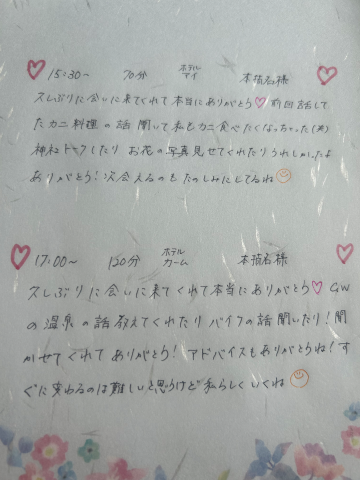 ♡ 15:30〜 70分 ホテル アイ 本指名様
久しぶりに会いに来てくれて本当にありがとう♡前回話して
たカニ料理の話聞いて私もカニ食べたくなっちゃった(笑)
神社トークしたり お花の写真見せてくれたりうれしかったよ
ありがとう!次会えるのをたのしみにしてるね☺
♡ 17:00〜 120分 ホテル カーム 本指名様
久しぶりに会いに来てくれて本当にありがとう♡ GW
の温泉の話教えてくれたりバイクの話聞いたり!聞
かせてくれてありがとう! アドバイスもありがとうね!す
ぐに変わるのは難しいと思うけど私らしくいくね☺